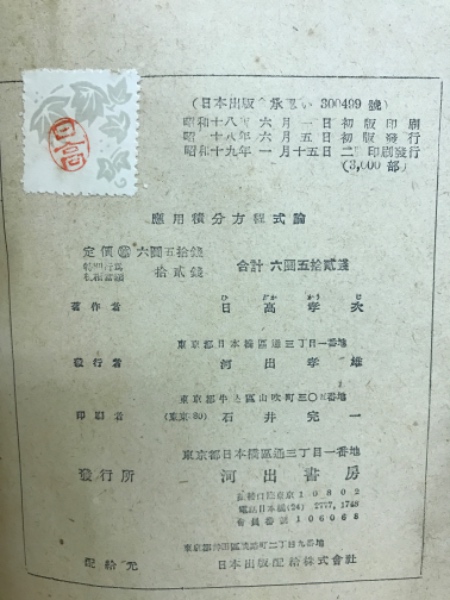 日高
(日本出版会承認い 300499 號)
昭和十八年 六月 一日 初版印刷
昭和十八年 六月 五日 初版發行
昭和十九年 一月十五日 二 印刷發行
(3,000 部)
應用積分方程式論
定價 六圓五拾錢
特別行爲税相當額 拾貳錢
合計 六圓五拾貳錢
ひ だか かう じ
著作者 日高孝次
東京都日本橋區通三丁目一番地
發行者 河出孝雄
東京都牛込區山吹町三〇 番地
印刷者 (東京 60) 石井完一
東京都日本橋區通三丁目一番地
發行所 河出書房
振替口座東京 10802
電話日本橋(24) 2777, 1748
會員番號 106068
東京都神田區淡路町二丁目九番地
配給元 日本出版配給株式會社